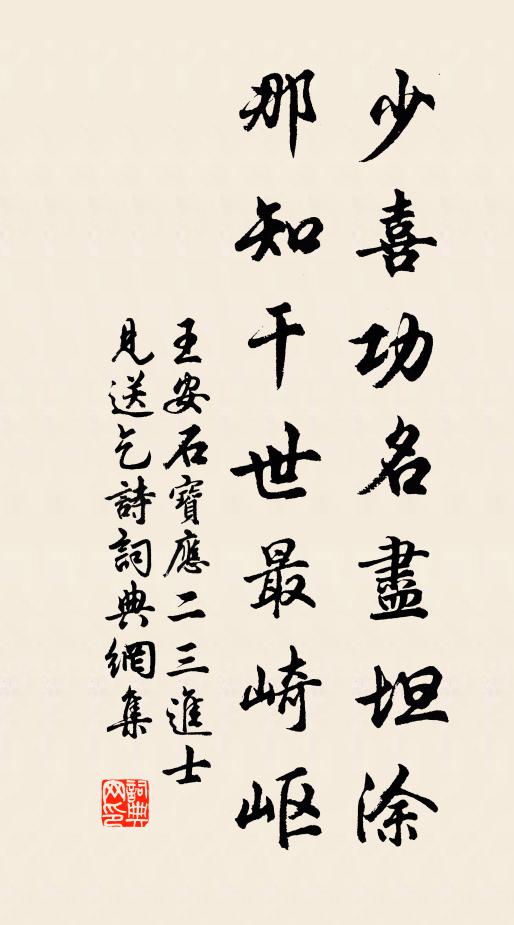 少喜功名盡坦涂
那知干世最崎岖
王安石寶應二三進士
見送乞詩詞典網集
詞典网印